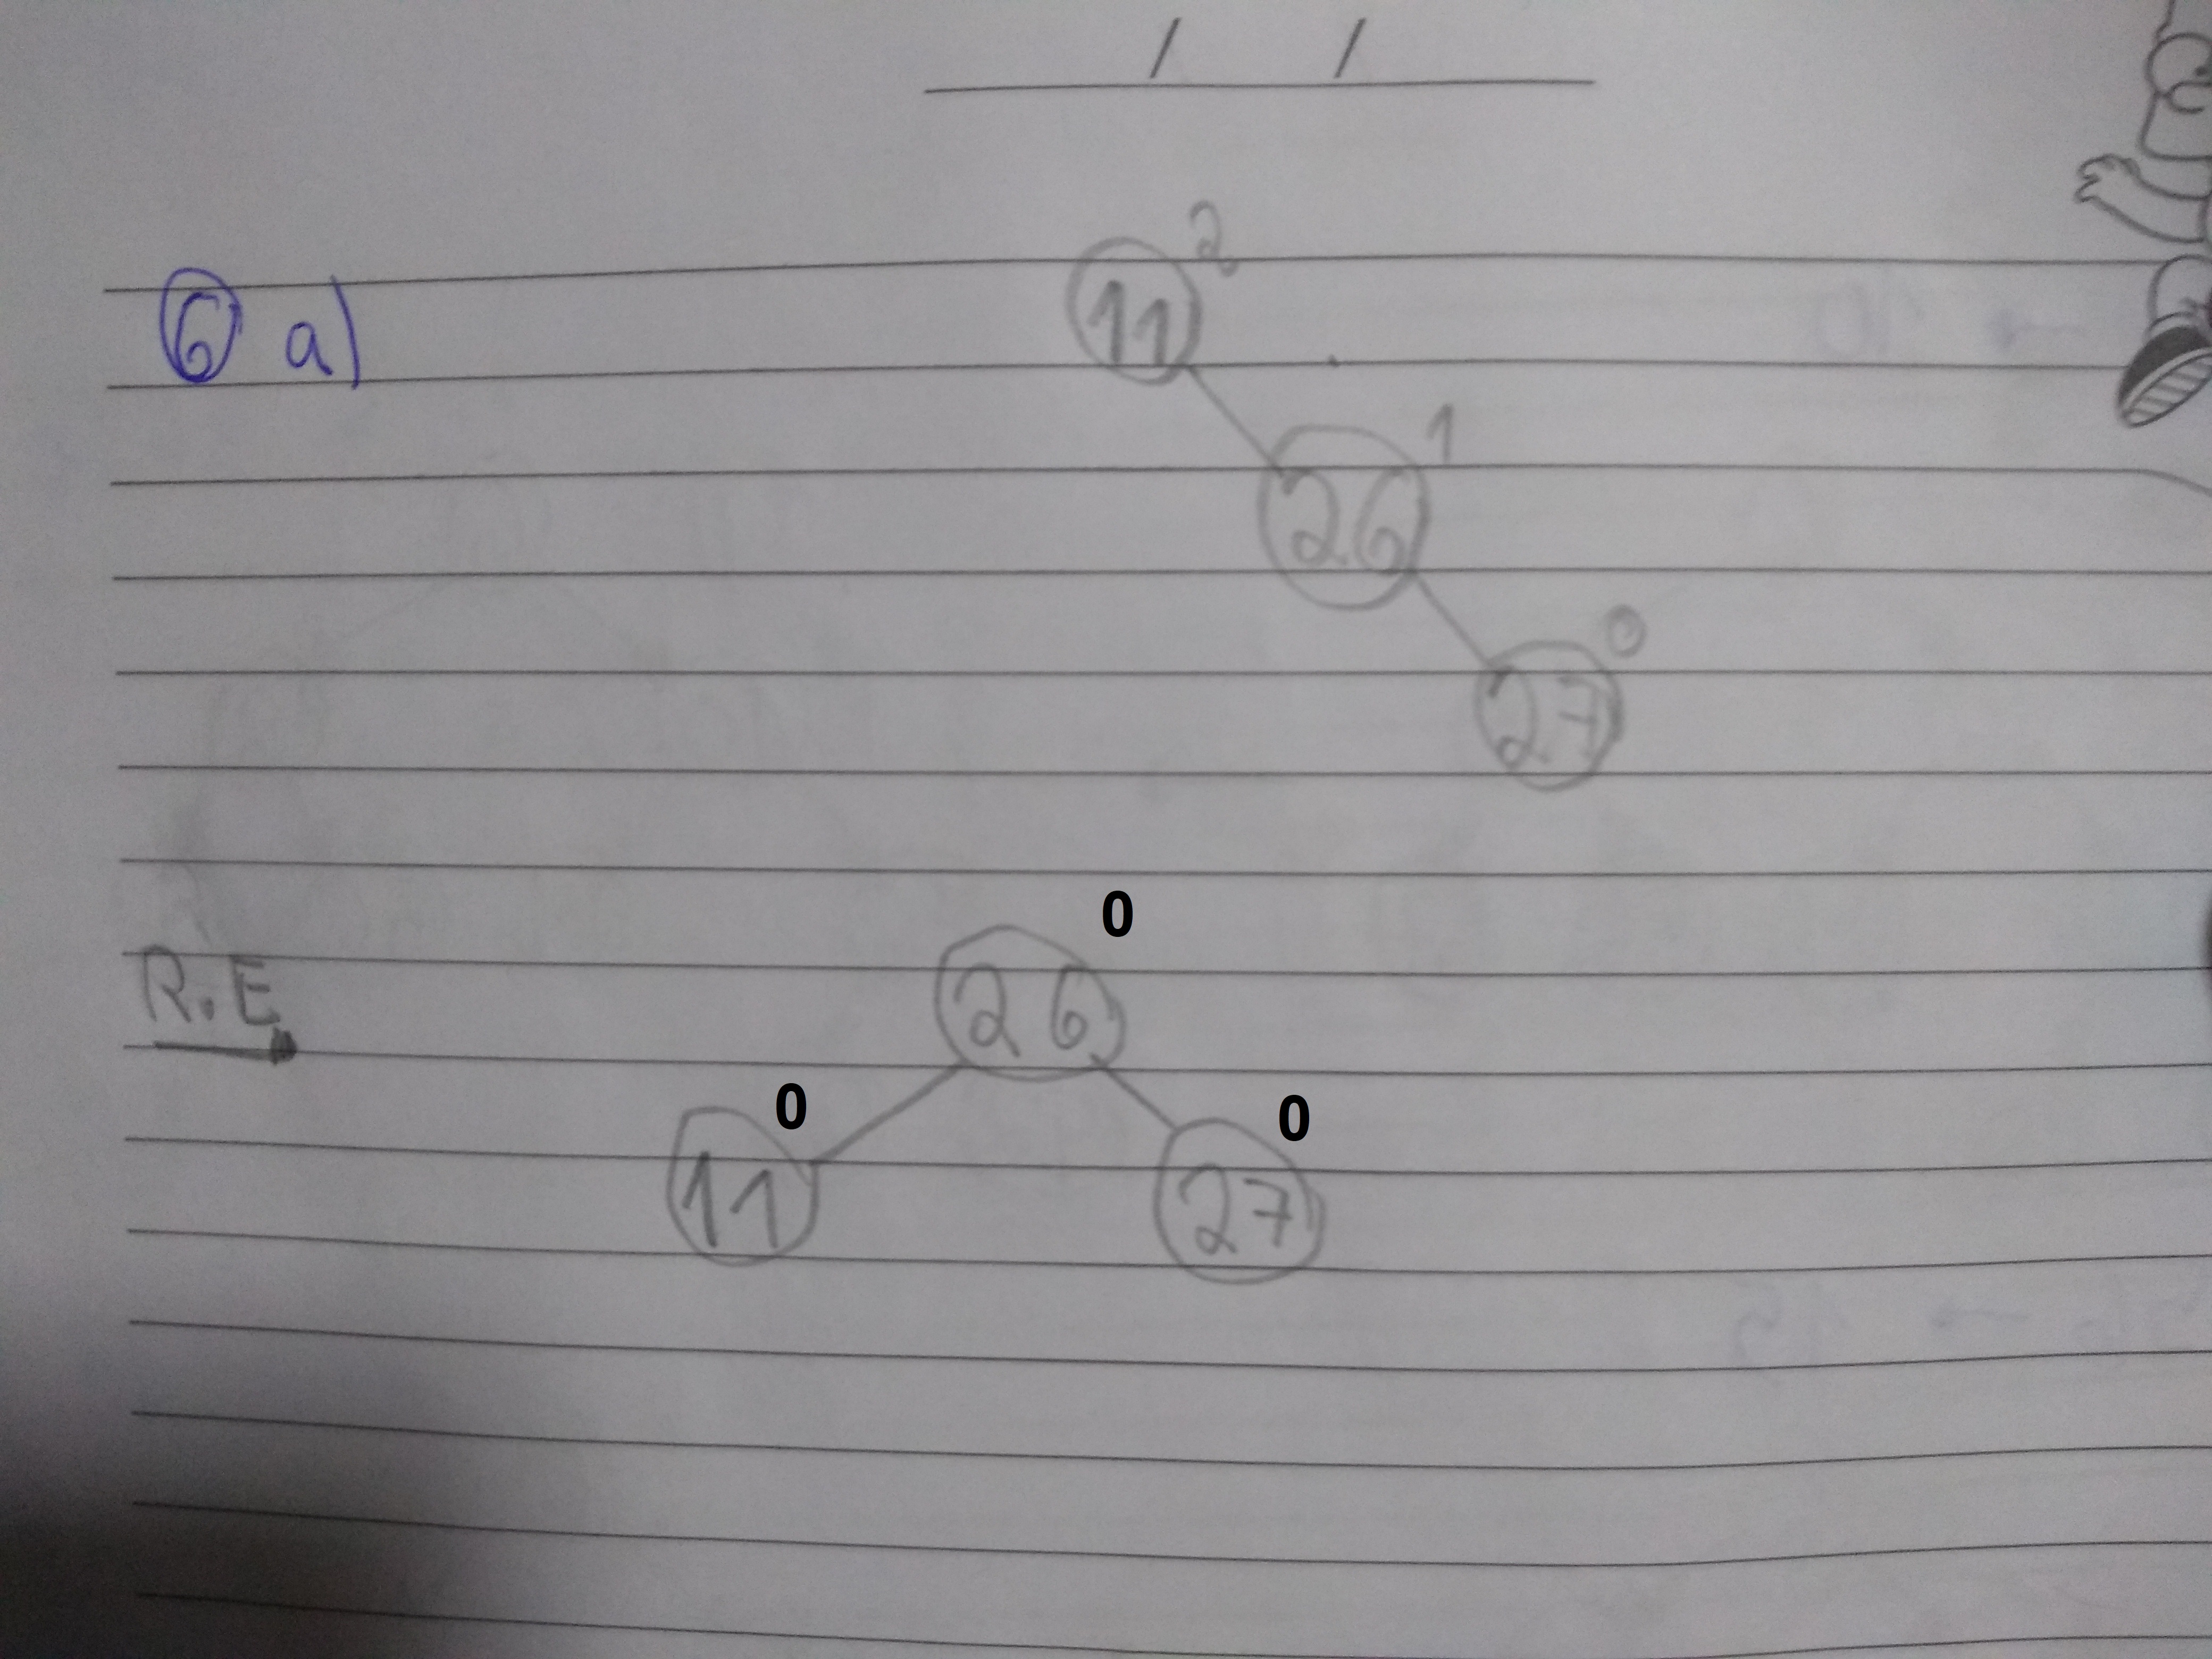 / /
6 a)
11 2
26 1
27 0
0
R.E 26
0 0
11 27